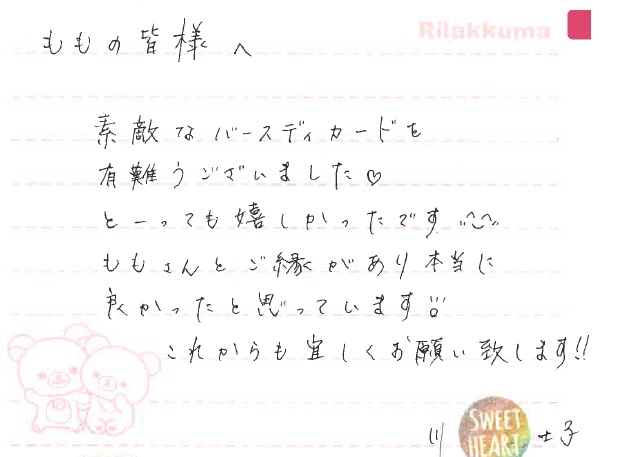 Rilakkuma
ももの皆様へ
素敵なバースディカードを
有難うございました♡
とーっても嬉しかったです
ももさんとご縁があり本当に
良かったと思っています
これからも宜しくお願い致します!!
川
SWEET
HEART
子